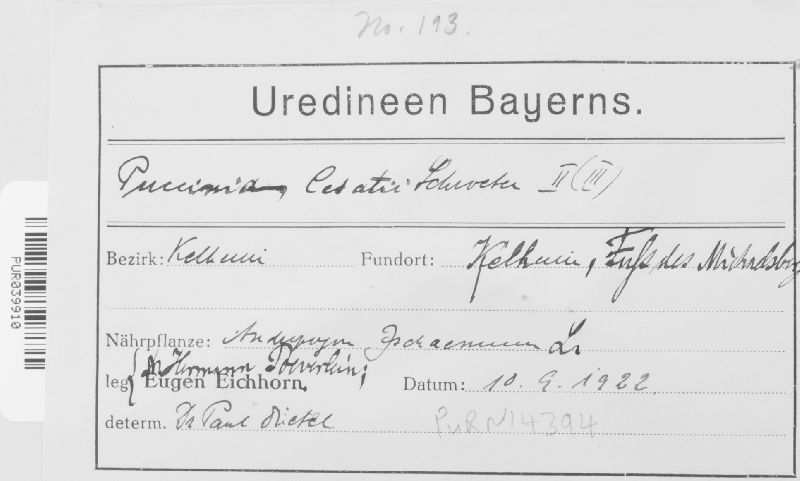 No. 193.
Uredineen Bayerns.
Puccinia Cesatii Schroeter II (III)
Bezirk: Kelheim Fundort: Kelheim, Fuß des Michaelsberg
Nährpflanze: Andropogon Ischaemum L.
Dr Hermann Poeverlein;
leg. Eugen Eichhorn. Datum: 10. 9. 1922
determ. Dr Paul Dietel
PUR N14394
PUR039910